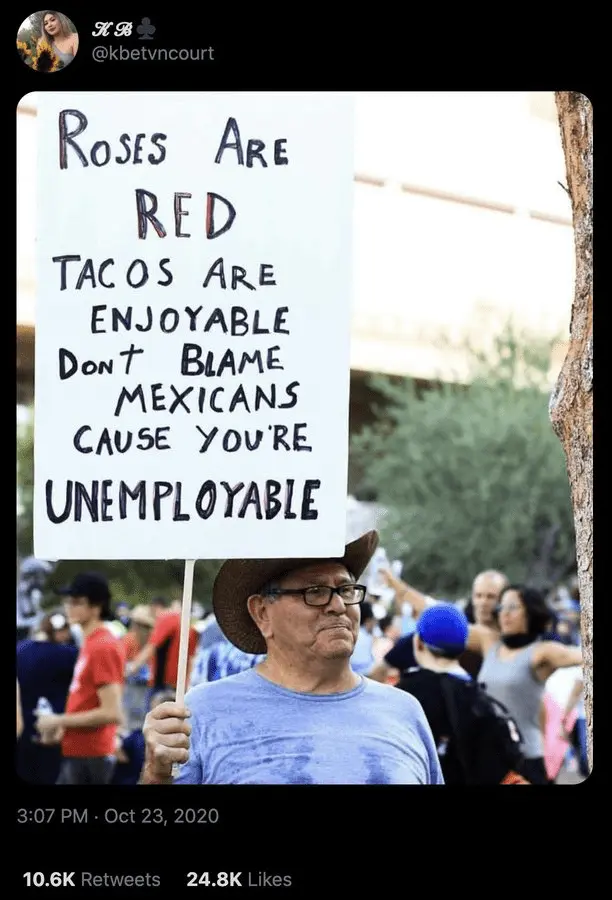 𝒦 ℬ♣
@kbetvncourt
ROSES ARE
RED
TACOS ARE
ENJOYABLE
DON'T BLAME
MEXICANS
CAUSE YOU'RE
UNEMPLOYABLE
3:07 PM · Oct 23, 2020
10.6K Retweets 24.8K Likes